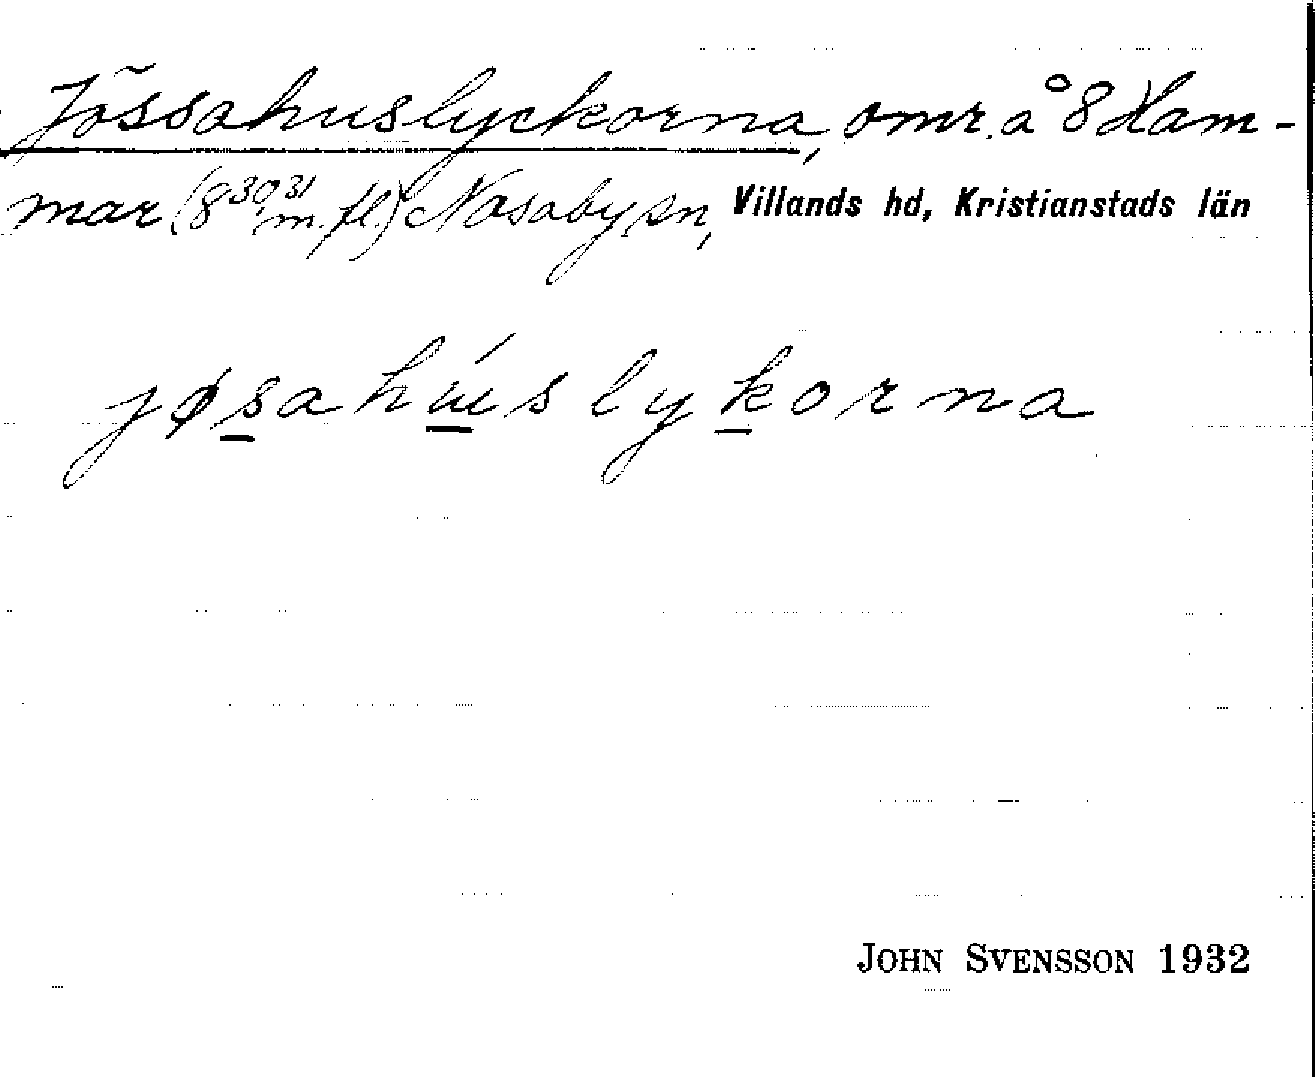 Jössahuslyckorna, omr. å 8 Ham-
mar (8 30, 31 m. fl.) Nosaby sn, Villands hd, Kristianstads län
jøsahúslykorna
JOHN SVENSSON 1932